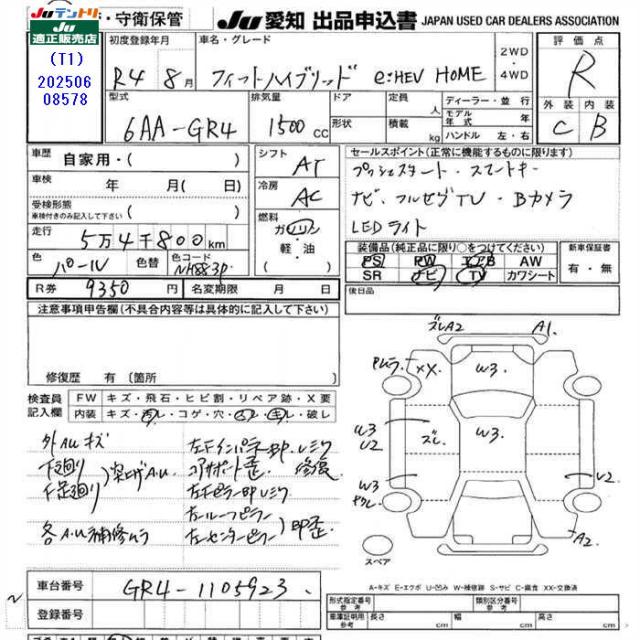 JUテントリ
JU
適正販売店
(T1)
202506
08578
・守衛保管
JU 愛知 出品申込書 JAPAN USED CAR DEALERS ASSOCIATION
初度登録年月
R4 8月
車名・グレード
フィットハイブリッド e:HEV HOME
2WD
・
4WD
評価点
R
外装 内装
C B
型式
6AA-GR4
排気量
1500 cc
ドア
形状
定員 人
積載 kg
ディーラー・並行
モデル年式 年
ハンドル 左・右
車歴 自家用・( )
車検 年 月( 日)
受検形態
車検付きのみ記入して下さい ( )
走行 5万4千800km
色 パール 色替 色コード NH883P
シフト AT
冷房 AC
燃料 ガソリン
軽・油
セールスポイント(正常に機能するものに限ります)
プッシュスタート・スマートキー
ナビ・フルセグTV・Bカメラ
LEDライト
装備品(純正品に限り○をつけてください)
PS PW エアB AW
SR ナビ TV カワシート
新車保証書
有・無
R券 9350 円 名変期限 月 日
後日品
注意事項申告欄(不具合内容等は具体的に記入して下さい)
修復歴 有〔箇所
検査員
記入欄
FW キズ・飛石・ヒビ割・リペア跡・X要
内装 キズ・汚レ・コゲ・穴・ ・ ・破レ
外AUキズ
下廻り
足廻り
突上げA.U
各A.U補修ムラ
左Fインパネ印.シミク
コアサポート歪 修復
左Fピラー印シミク
左ルーフピラー
左センターピラー
印歪
ズレA2 A1
Pムラ
XX
W3
W3
U2
ズレ
W3
W3
ヤクレ
U2
A2
スペア
A-キズ E-エクボ U-凹み W-補修跡 S-サビ C-腐食 XX-交換済
車台番号 GR4-1105923
登録番号
形式指定番号
参考
類別区分番号
参考
車庫証明用
参考
長さ cm 幅 cm 高さ cm